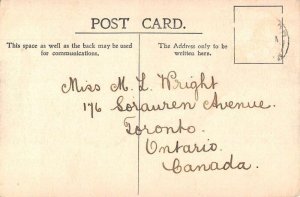 POST CARD.
This space as well as the back may be used
for communications.
The Address only to be
written here.
Miss M. L. Wright
176 Sorauren Avenue.
Toronto.
Ontario.
Canada.